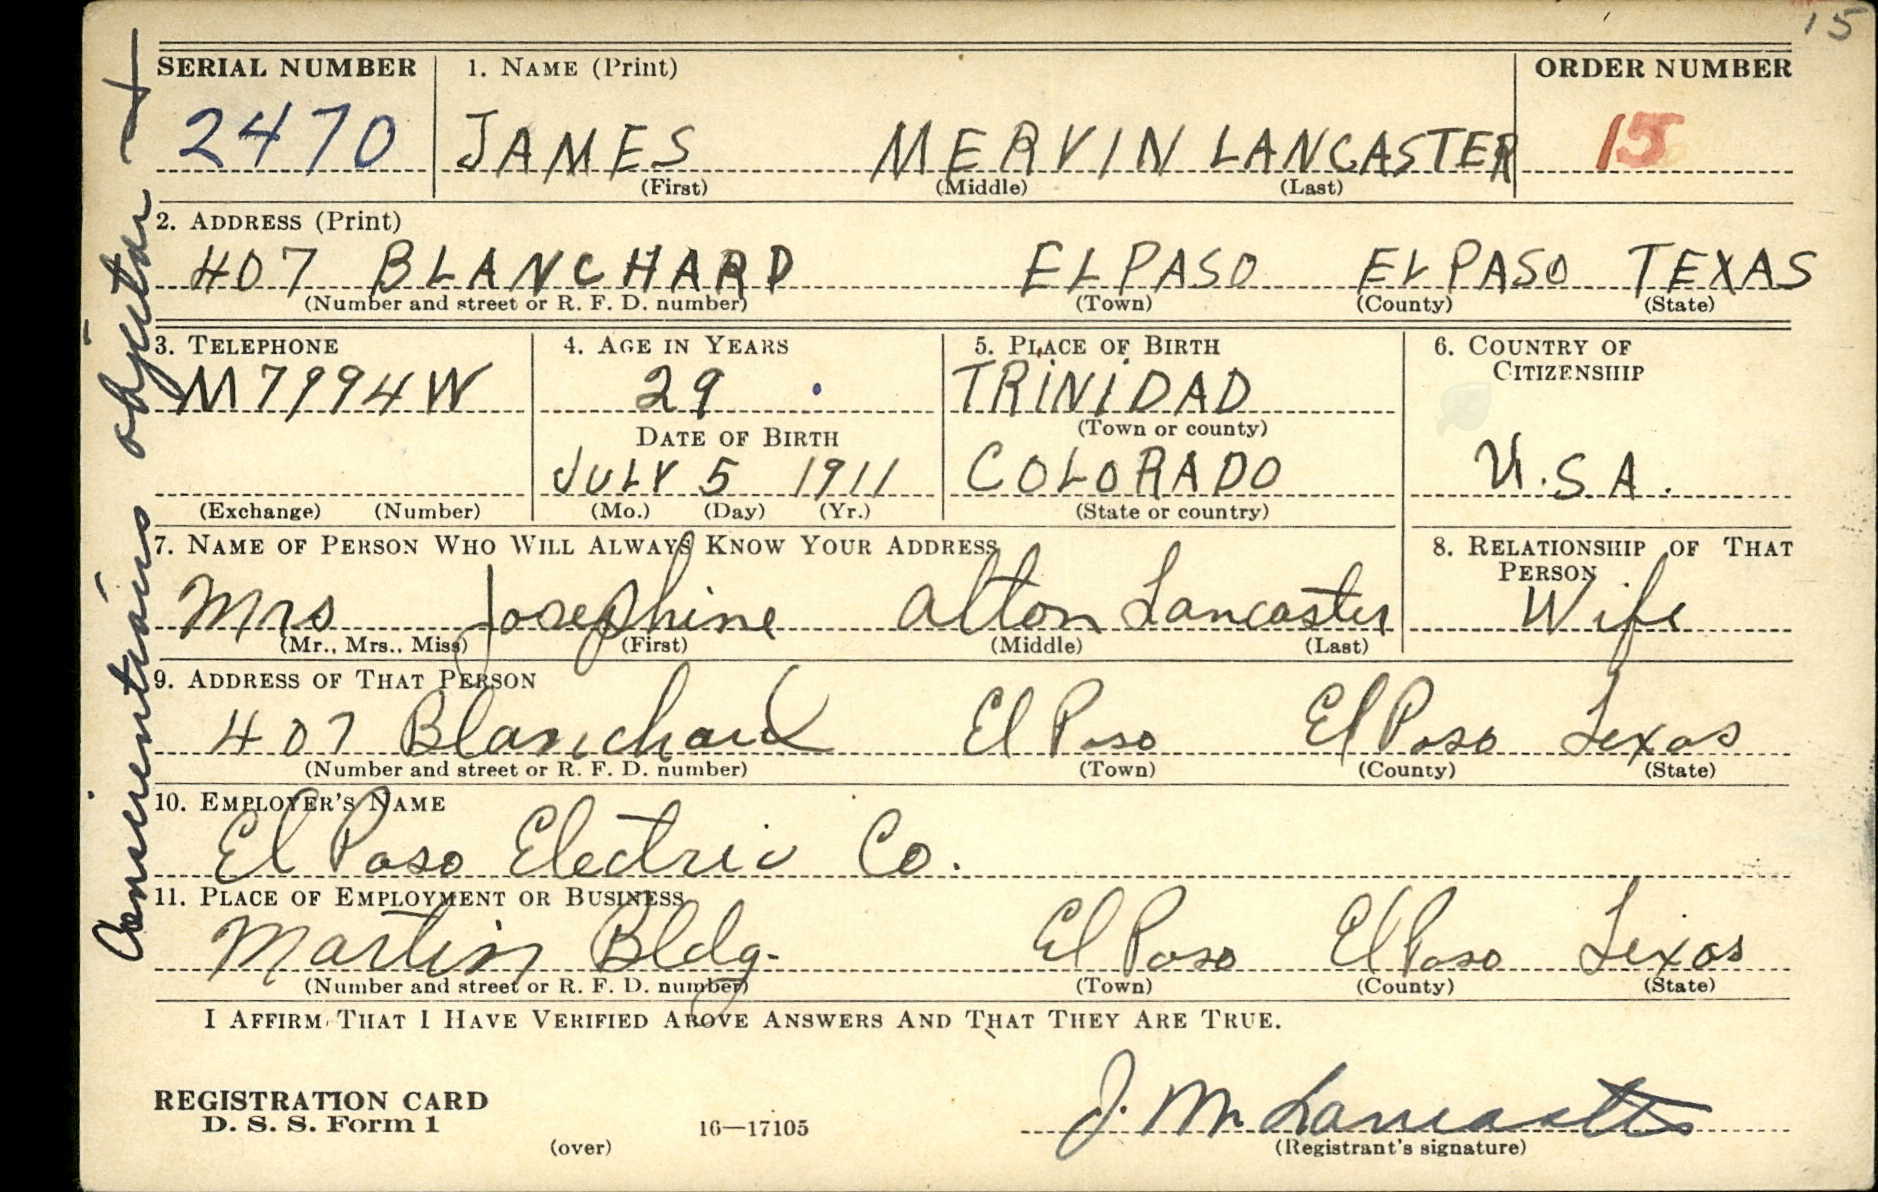 15
SERIAL NUMBER 1. NAME (Print) ORDER NUMBER
2470 JAMES MERVIN LANCASTER 15
(First) (Middle) (Last)
2. ADDRESS (Print)
407 BLANCHARD EL PASO EL PASO TEXAS
(Number and street or R. F. D. number) (Town) (County) (State)
3. TELEPHONE 4. AGE IN YEARS 5. PLACE OF BIRTH 6. COUNTRY OF CITIZENSHIP
M7994W 29 TRINIDAD
DATE OF BIRTH (Town or county)
JULY 5 1911 COLORADO U.S.A.
(Exchange) (Number) (Mo.) (Day) (Yr.) (State or country)
7. NAME OF PERSON WHO WILL ALWAYS KNOW YOUR ADDRESS 8. RELATIONSHIP OF THAT PERSON
Mrs Josephine Alton Lancaster Wife
(Mr., Mrs., Miss) (First) (Middle) (Last)
9. ADDRESS OF THAT PERSON
407 Blanchard El Paso El Paso Texas
(Number and street or R. F. D. number) (Town) (County) (State)
10. EMPLOYER'S NAME
El Paso Electric Co.
11. PLACE OF EMPLOYMENT OR BUSINESS
Martin Bldg. El Paso El Paso Texas
(Number and street or R. F. D. number) (Town) (County) (State)
I AFFIRM THAT I HAVE VERIFIED ABOVE ANSWERS AND THAT THEY ARE TRUE.
REGISTRATION CARD
D. S. S. Form 1
(over) 16—17105
J. M. Lancaster
(Registrant's signature)
Conscientious objector